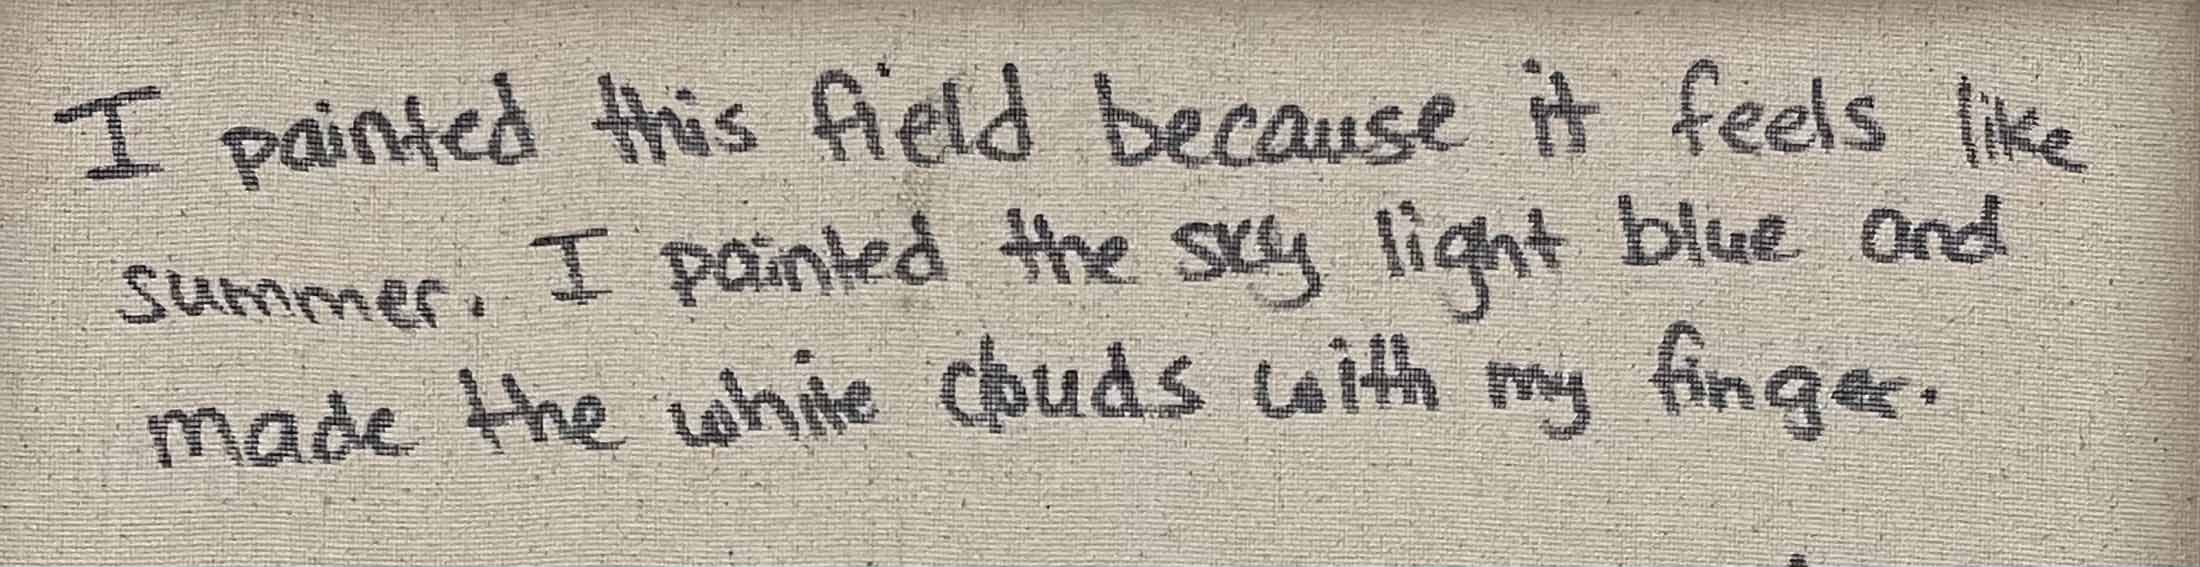 I painted this field because it feels like
summer. I painted the sky light blue and
made the white clouds with my finger.